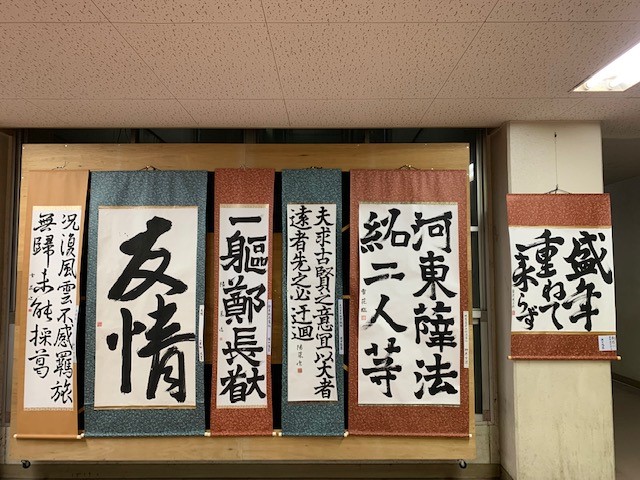 盛年
重ねて
来らず
河東薛法
紹二人等
夫求古賢之意宜以大者
遠者先之必迂迴
一軀鄭長猷
友情
況復風雲不感羈旅
無歸未能採葛